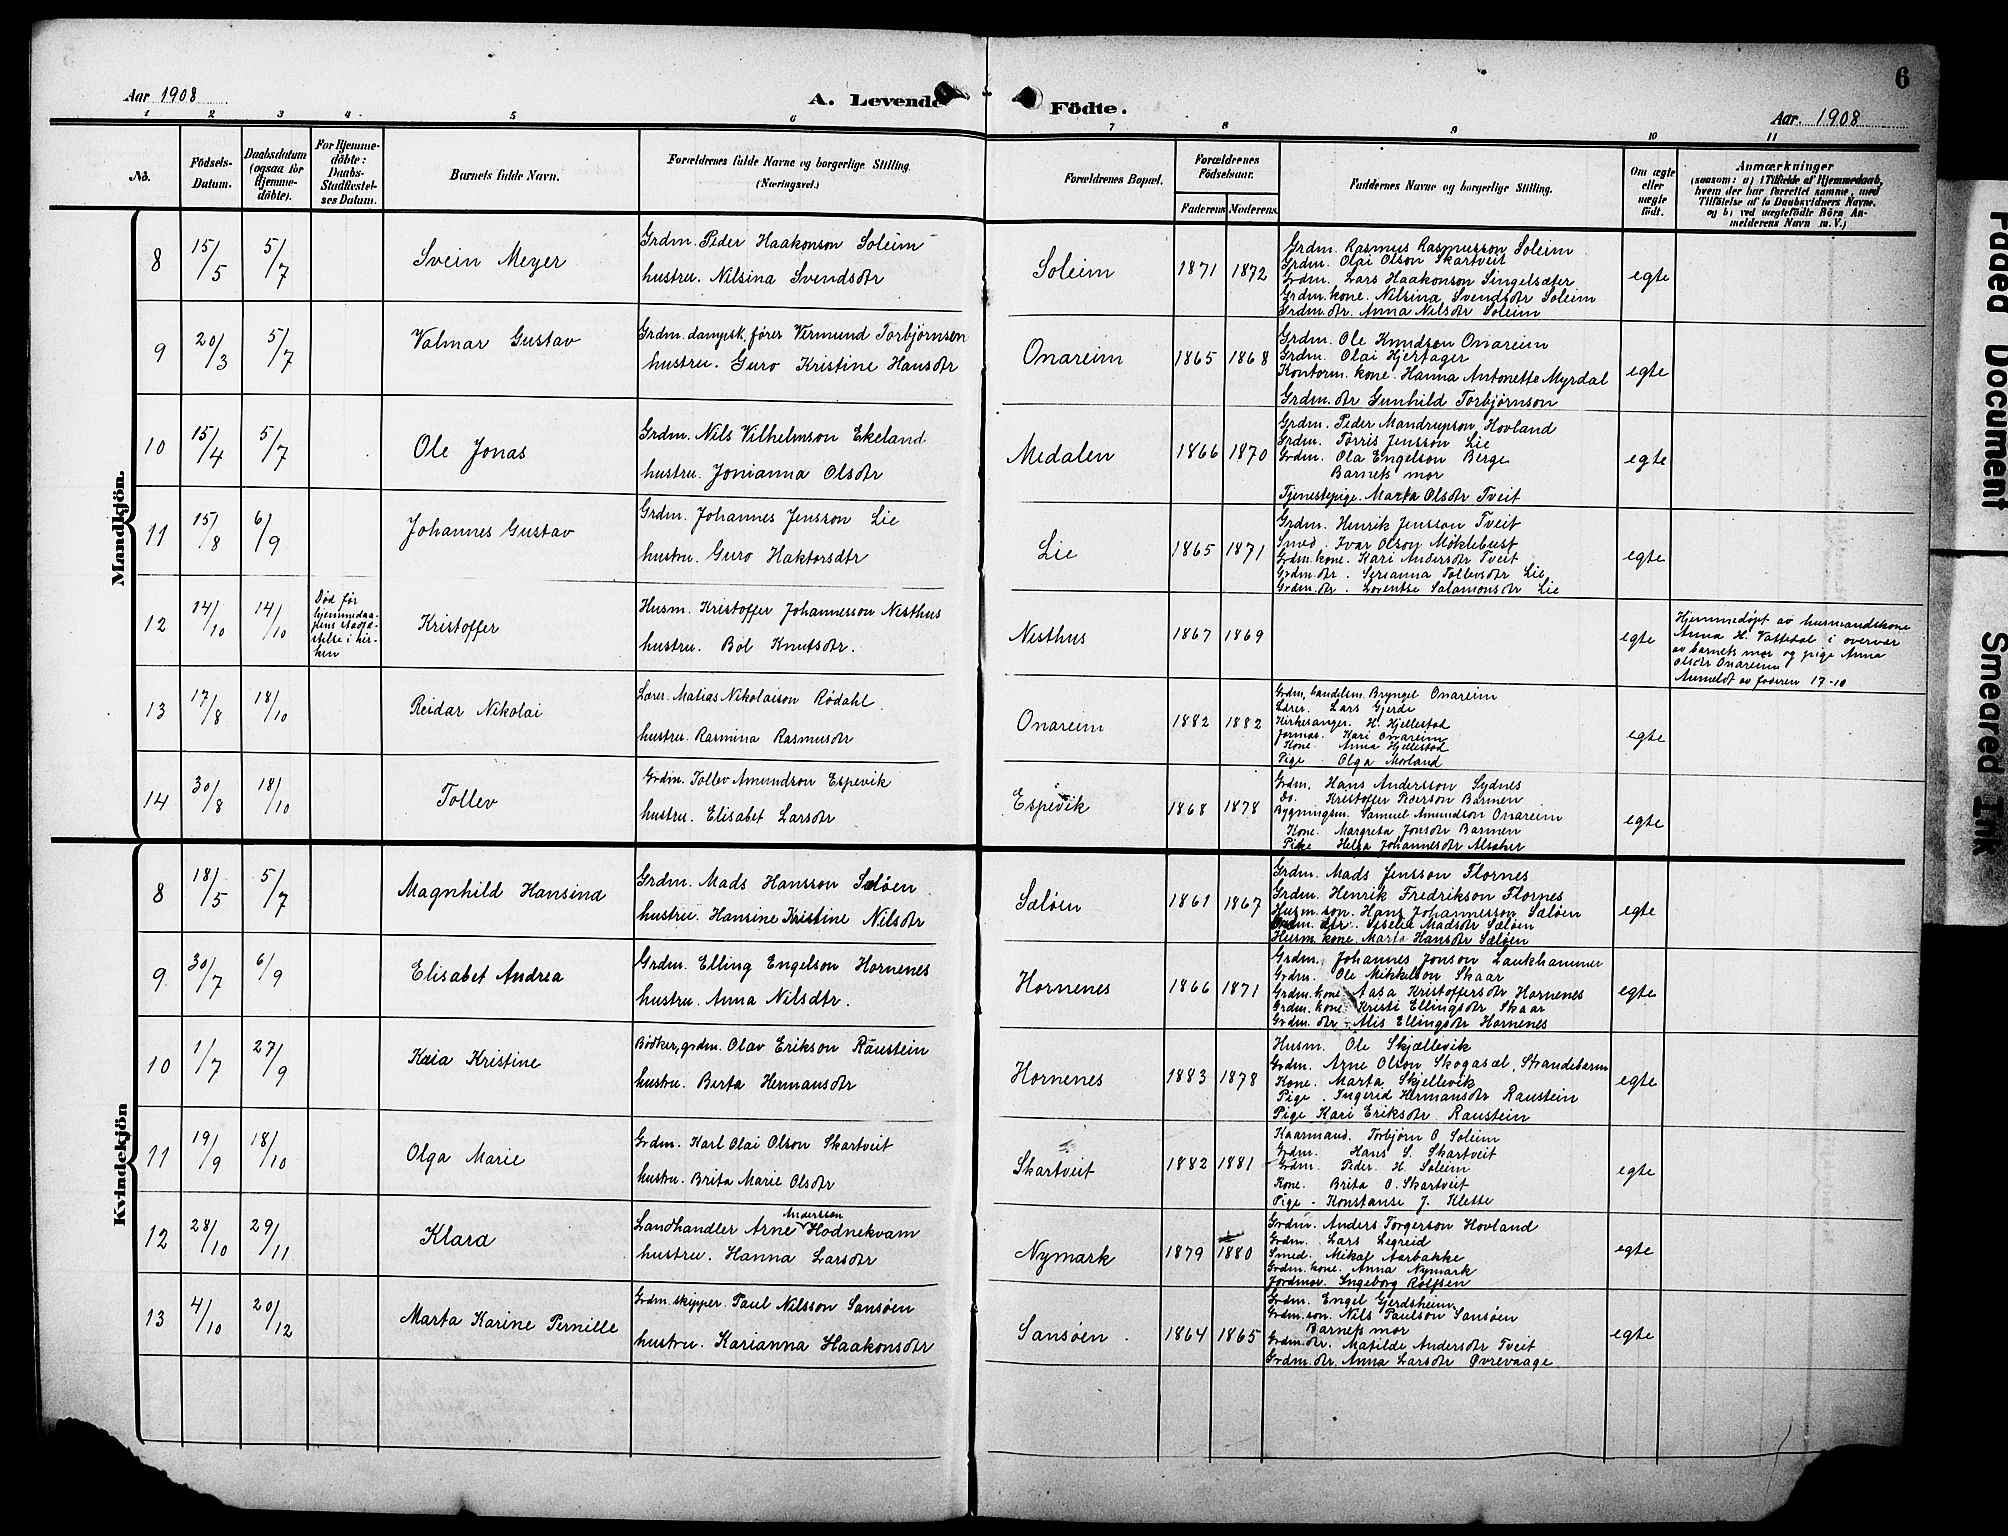 6
Aar 1908
A. Levende Födte.
Aar. 1908
1 2 3 4 5 6 7 8 9 10 11
No.
Födsels-Datum.
Daabsdatum (ogsaa for Hjemme-döbte).
For Hjemme-döbte: Daabs-Stadfæstel-ses Datum.
Barnets fulde Navn.
Forældrenes fulde Navne og borgerlige Stilling. (Næringsvei.)
Forældrenes Bopæl.
Forældrenes Födselsaar.
Faderens. Moderens.
Faddernes Navne og borgerlige Stilling.
Om ægte eller uægte födt.
Anmærkninger
(saasom: a) i Tilfælde af Hjemmedaab,
hvem der har forrettet samme, med
Tilföielse af to Daabsvidners Navne.
og b) ved uægtefödte Börn An-
melderens Navn m. V.)
Mandkjön.
8 15/5 5/7 Svein Meyer
Grdm. Peder Haakonson Soleim
hustru. Nilsina Svendsdtr
Soleim 1871 1872
Grdm. Rasmus Rasmusson Soleim
Grdm. Olai Olson Skartveit
Grdm. Lars Haakonson Singelsæter
Grdm. kone. Nilsina Svendsdtr Soleim
Grdm. dtr. Anna Nilsdtr Soleim
egte
9 20/3 5/7 Valmar Gustav
Grdm. dampsk. fører Vermund Torbjørnsen
hustru. Guro Kristine Hansdtr
Onareim 1865 1868
Grdm. Ole Knudson Onareim
Grdm. Olai Hjertager
Kontorm. kone. Hanna Antonette Myrdal
Grdm. dtr Gunhild Torbjørnson
egte
10 15/4 5/7 Ole Jonas
Grdm. Nils Vilhelmson Ekeland
hustru. Jonianna Olsdtr
Medalen 1866 1870
Grdm. Peder Mandrupson Hovland
Grdm. Torris Jensson Lie
Grdm. Ola Engelson Berge
Barnets mor
Tjenestepige. Marta Olsdtr Tveit
egte
11 15/8 6/9 Johannes Gustav
Grdm. Johannes Jensson Lie
hustru. Guro Haktorsdtr
Lie 1865 1871
Grdm. Henrik Jensson Tveit
Smed. Ivar Olson Møklebust
Grdm. kone. Kari Andersdtr Tveit
Grdm. dtr. Serianna Tollevsdtr Lie
Grdm. dtr. Lorentse Salamonsdtr Lie
egte
12 14/10 14/10
Død før
hjemmedaa-
bens stadfæ-
stelse i kir-
ken
Kristoffer
Husm. Kristoffer Johannesson Nesthus
hustru. Bol Knutsdtr.
Nesthus 1867 1869
egte
Hjemmedøpt av husmandskone
Anna H. Vattedal i overvær
av barnets mor og pige Anna
Olsdtr Onareim
Anmeldt av faderen 17-10
13 17/8 18/10 Reidar Nikolai
Lærer. Matias Nikolaison Rødahl.
hustru. Rasmina Rasmusdtr
Onareim 1882 1882
Grdm, handelsm. Bryngel Onareim
Lærer. Lars Gjerde
Kirkesanger. H. Hjellestad
Jormor. Kari Onareim
Kone. Anna Hjellestad
Pige Olga Morland
egte
14 30/8 18/10 Tollev
Grdm. Tollev Amundson Espevik
hustru. Elisabet Larsdtr
Espevik 1868 1878
Grdm. Hans Andersson Sydnes
Do. Kristoffer Pederson Barmen
Bygningsm. Samuel Amundson Onareim
Kone. Margreta Jonsdtr Barmen
Pike Helga Johannesdtr Alsaker
egte
Kvindekjön
8 18/5 5/7 Magnhild Hansina
Grdm. Mads Hansson Sæløen.
hustru. Hansine Kristine Nilsdtr
Sæløen 1861 1867
Grdm. Mads Jensson Flornes
Grdm. Henrik Fredrikson Flornes
Husm. son. Hans Johannesson Sæløen
Grdm. dtr. Siselie Madsdtr Sæløen
Husm. kone. Marta Hansdtr Sæløen
egte
9 30/7 6/9 Elisabet Andrea
Grdm. Elling Engelson Hornenes
hustru. Anna Nilsdtr.
Hornenes 1866 1871
Grdm. Johannes Jonson Laukhammer
Grdm. Ole Mikkelson Skaar
Grdm. kone Aasa Kristoffersdtr Hornenes
Grdm. kone. Kristi Ellingsdtr Skaar
Grdm. dtr. Alis Ellingsdtr Hornenes
egte
10 1/7 27/9 Kaia Kristine
Bødker, grdm. Olav Erikson Raustein
hustru. Berta Hermansdtr
Hornenes 1883 1878
Husm. Ole Skjællevik
Grdm. Arne Olson Skogasæl, Strandebarm
Kone. Marta Skjellevik
Pige. Ingerid Hermansdtr Raustein
Pige Kari Eriksdtr. Raustein
egte
11 19/9 18/10 Olga Marie
Grdm. Karl Olai Olson Skartveit
hustru. Brita Marie Olsdtr
Skartveit 1882 1881
Kaarmand. Torbjørn O Soleim
Grdm. Hans S. Skartveit
Grdm. Peder H. Soleim
Kone. Brita O. Skartveit
Pige - Konstanse J. Klette
egte
12 28/10 29/11 Klara
Andersson
Landhandler Arne Hodnekvam
hustru. Hanna Larsdtr
Nymark 1879 1880
Grdm. Anders Torgerson Hovland
Grdm. Lars Legreid
Smed. Mikal Aarbakke
Grdm. kone. Anna Nymark
Jordmor. Ingeborg Rolfsen
egte
13 4/10 20/12 Marta Karine Pernille
Grdm. skipper. Paul Nilsson Sansøen
hustru. Karianna Haakonsdtr
Sansøen. 1864 1865
Grdm. Engel Gjerdsheim.
Grdm. son. Nils Paulson Sansøen
Barnets mor
Grdm. dtr. Matilde Andersdtr Tveit
Grdm. dtr. Anna Larsdtr Øvrevaage
egte
Faded Document
Smeared Ink